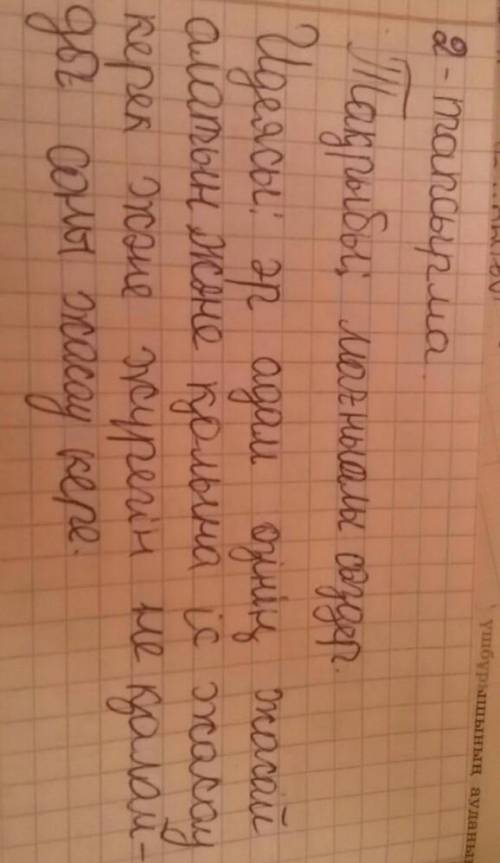 2-тапсырма.
Тақрыбы; мағныалы сөздер.
Идеясы: әр адам өзінің жасай
алатын және қолына іс жасау
керек және жүрегін не қалам-
ды соны жасау кере.
үшбұрышының ауданын